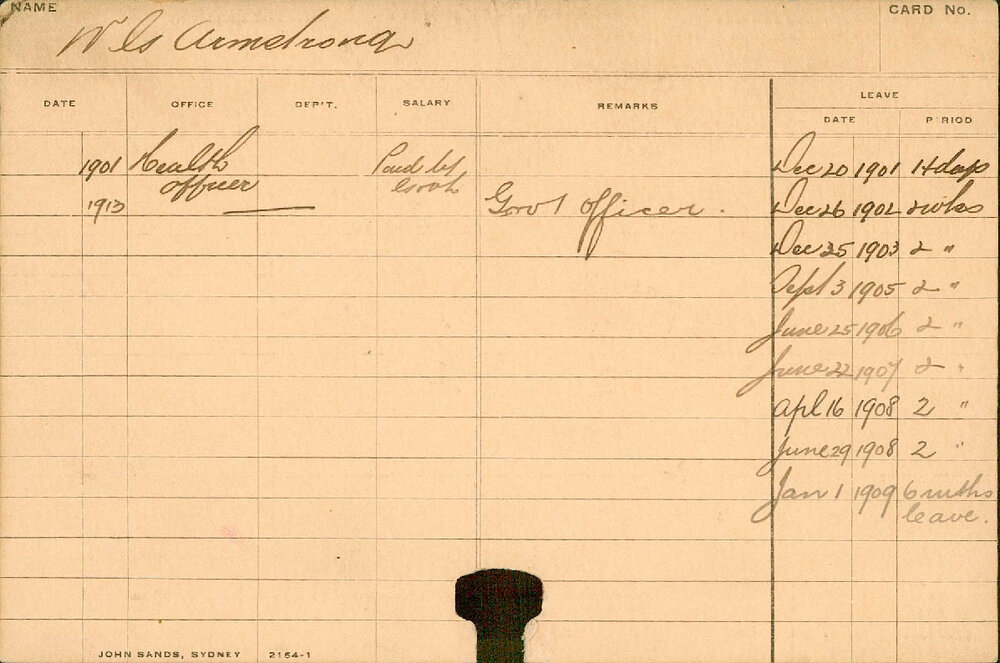 NAME
CARD No.
W G Armstrong
DATE OFFICE DEP'T. SALARY REMARKS LEAVE
DATE PERIOD
1901 Health officer Paid by Govt Dec 20 1901 14 days
1913 —— Govt officer. Dec 26 1902 2 wks
Dec 25 1903 2 "
Sept 3 1905 2 "
June 25 1906 2 "
June 22 1907 2 "
Apl 16 1908 2 "
June 29 1908 2 "
Jan 1 1909 6 mths
leave.
JOHN SANDS, SYDNEY 2154-1